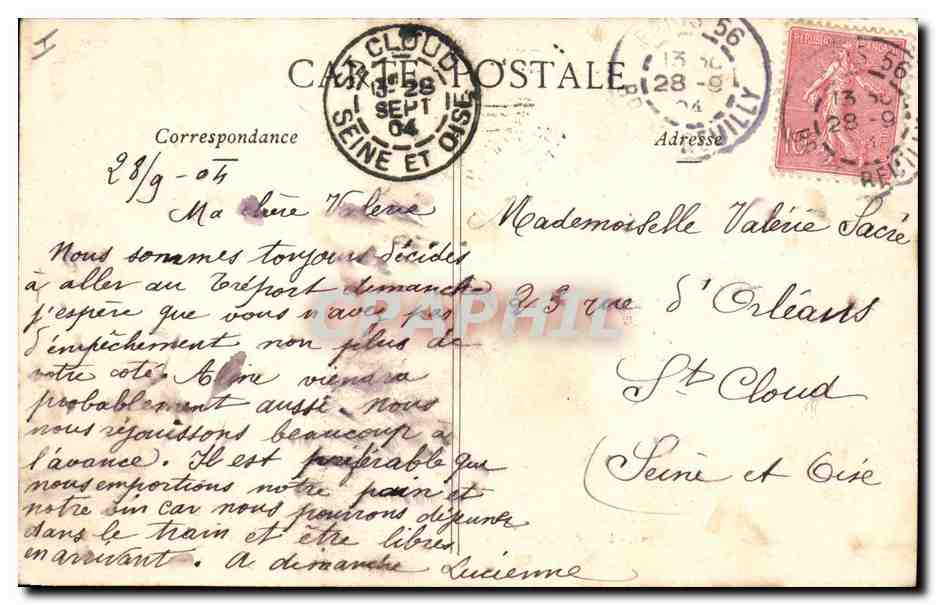 CARTE POSTALE
Correspondance
Adresse
ST CLOUD
13 28
SEPT
04
SEINE ET OISE
56
13
28 -9
04
REUILLY
56
13 30
28 -9
REUILLY
28/9 - 04
Ma chère Valérie
Nous sommes toujours décidés
à aller au Tréport dimanche
j'espère que vous n'avez pas
d'empêchement non plus de
votre coté. Aline viendra
probablement aussi. Nous
nous réjouissons beaucoup à
l'avance. Il est préférable que
nous emportions notre pain et
notre vin car nous pourrons déjeuner
dans le train et être libres
en arrivant. A dimanche Lucienne
Mademoiselle Valérie Sacré
23 rue d'Orléans
St Cloud
(Seine et Oise
CPAPHIL